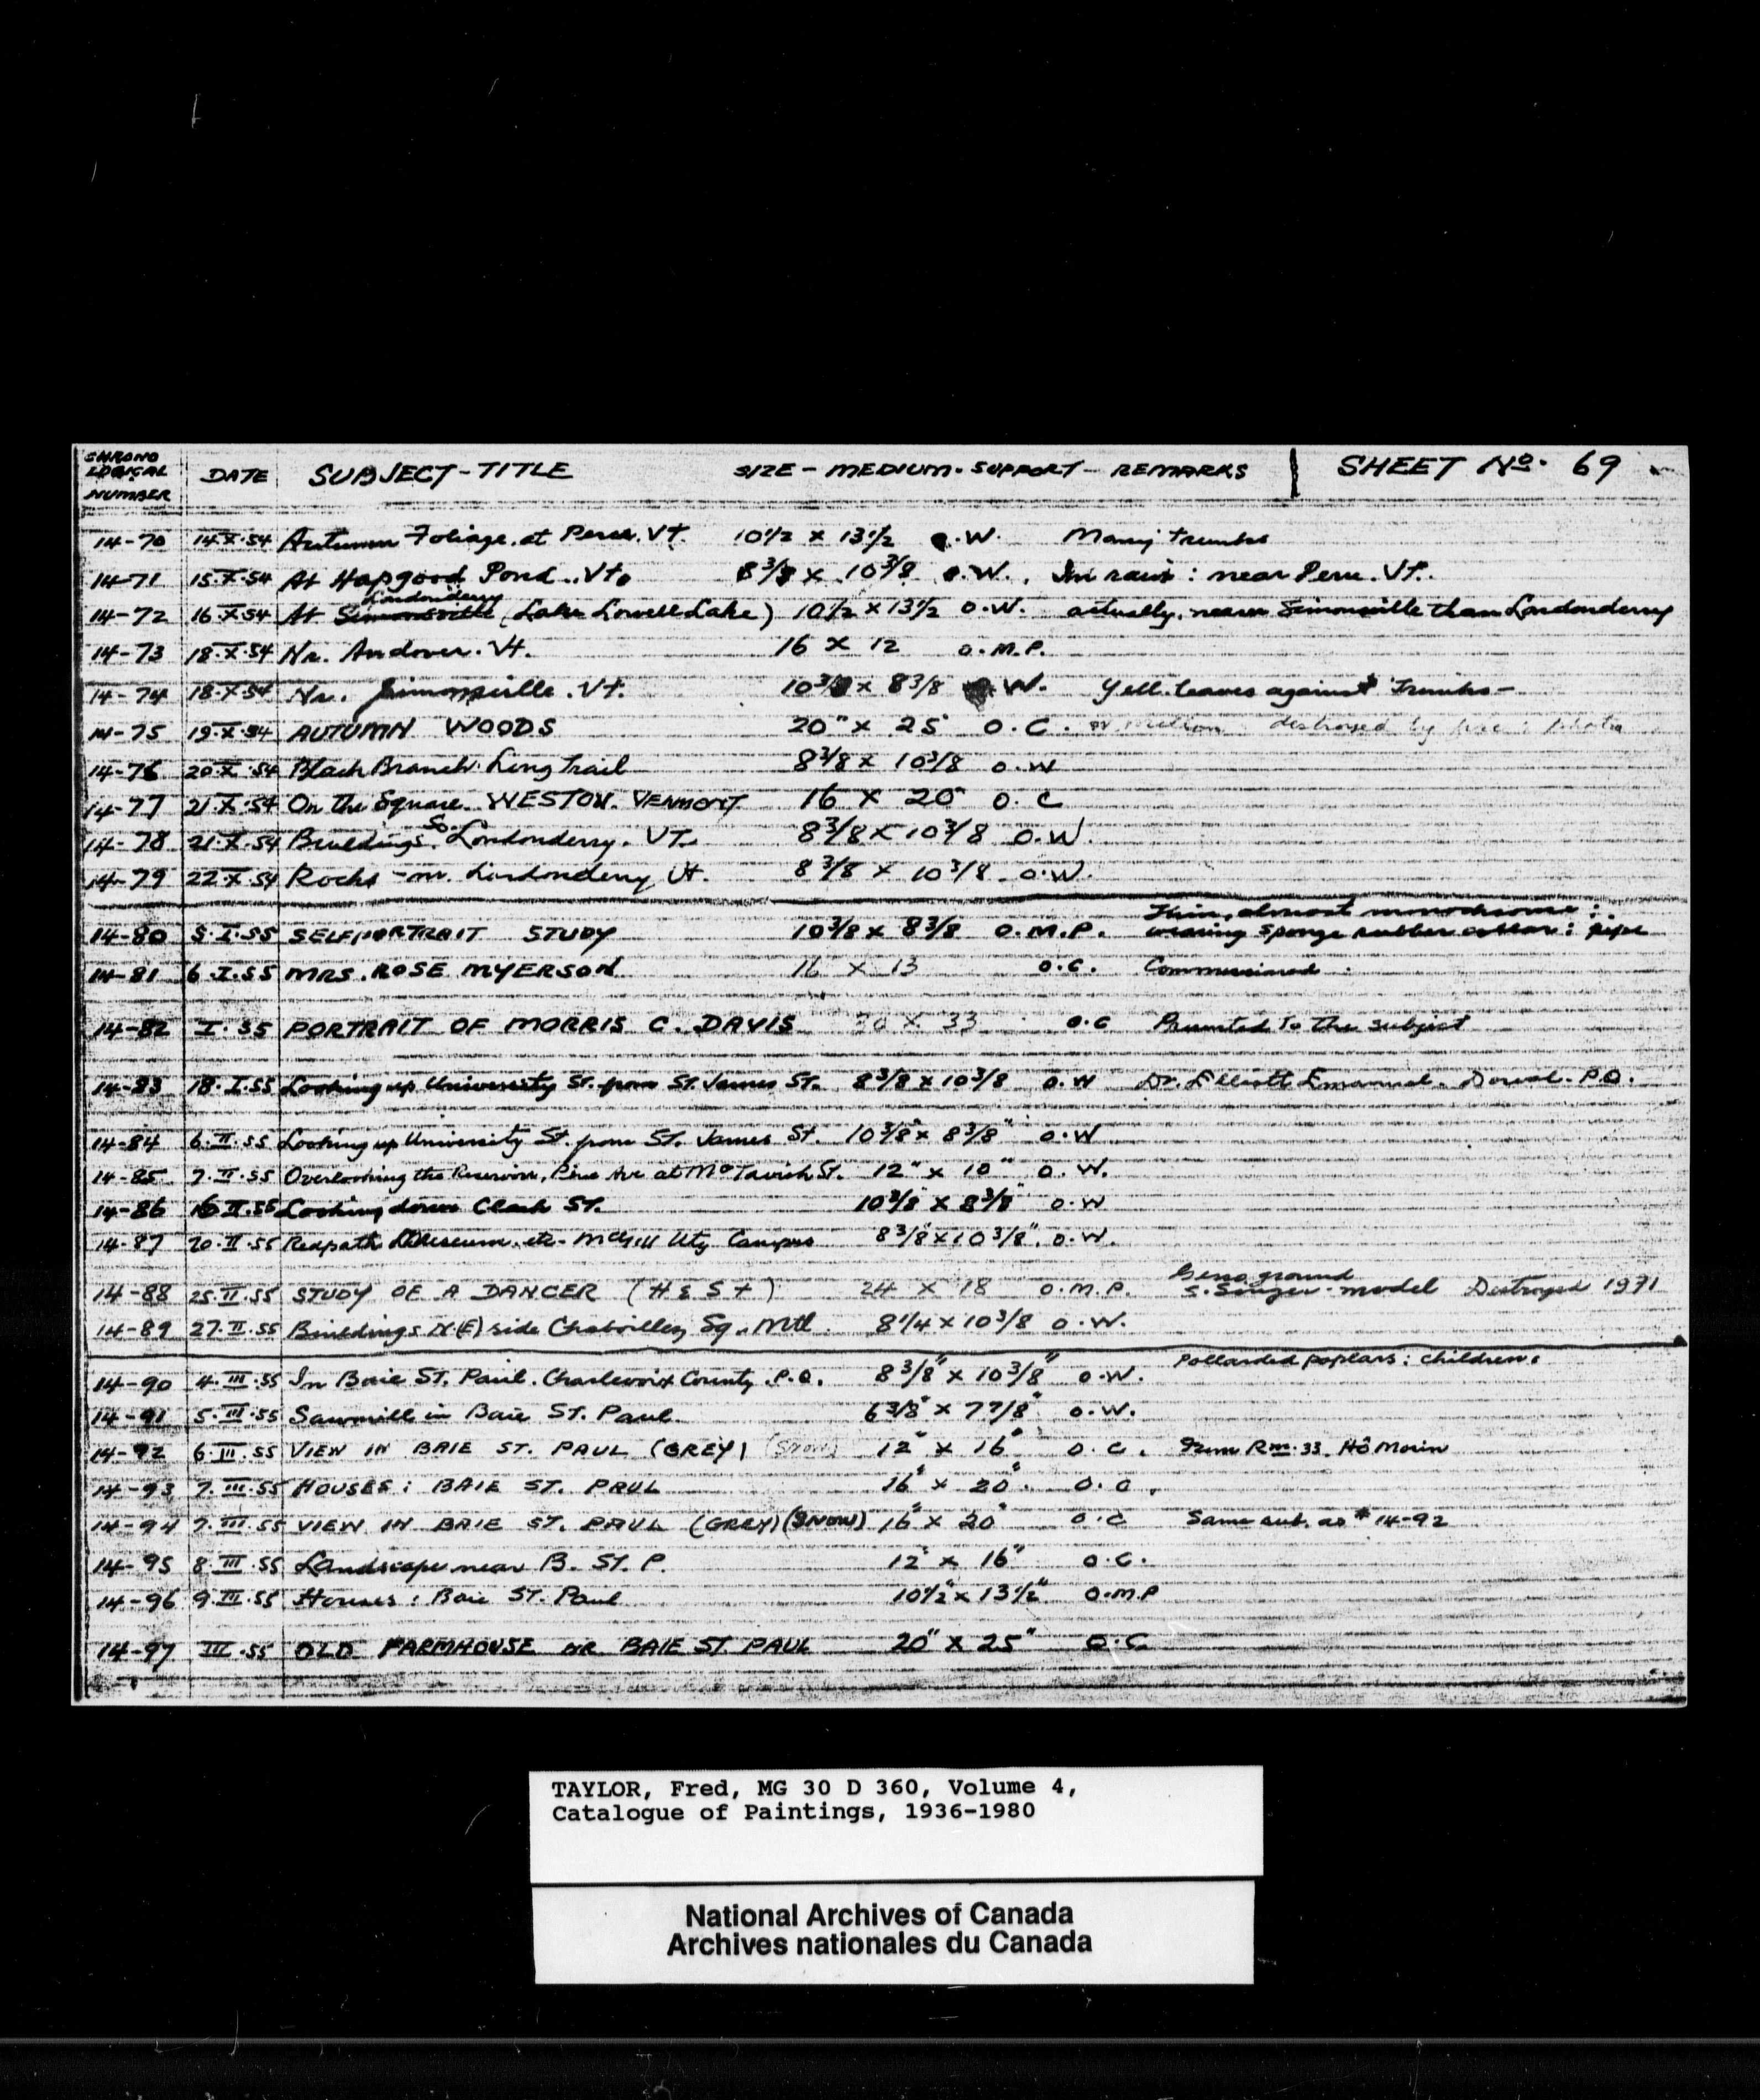 CHRONO
LOGICAL
NUMBER DATE SUBJECT-TITLE SIZE - MEDIUM. SUPPORT - REMARKS SHEET No. 69
14-70 14.X.54 Autumn Foliage. at Peru. Vt. 10 1/2 x 13 1/2 o.W. Many trunks
14-71 15.X.54 At Hapgood Pond.. Vt. 8 3/8 x 10 3/8 o.W.. In rain: near Peru. Vt.
Londonderry
14-72 16.X.54 At Simonsville (Lake Lowell Lake) 10 1/2 x 13 1/2 o.W. actually, nearer Simonsville than Londonderry
14-73 18.X.54 Nr. Andover. Vt. 16 x 12 o.M.P.
14-74 18.X.54 Nr. Simonsville. Vt. 10 3/8 x 8 3/8 W. Yell. leaves against Trunks-
14-75 19.X.54 AUTUMN WOODS 20" x 25" O.C. destroyed by fire
14-76 20.X.54 Black Branch. Long Trail 8 3/8 x 10 3/8 o.W
14-77 21.X.54 On the Square. WESTON. VERMONT 16 x 20" O.C
14-78 21.X.54 Buildings. So. Londonderry. VT. 8 3/8 x 10 3/8 O.W.
14-79 22.X.54 Rocks - nr. Londonderry Vt. 8 3/8 x 10 3/8 o.W.
Thin, almost monochrome:
14-80 5.I.55 SELFPORTRAIT STUDY 10 3/8 x 8 3/8 O.M.P. wearing sponge rubber collar: pipe
14-81 6.I.55 MRS. ROSE MYERSON 16 x 13 o.c. Commissioned
14-82 I.55 PORTRAIT OF MORRIS C. DAVIS x 33 o.c Presented to the subject
14-83 18.I.55 Looking up University St. from St. James St. 8 3/8 x 10 3/8 o.W Dr. Elliott Emanuel. Dorval. P.Q.
14-84 6.II.55 Looking up University St. from St. James St. 10 3/8" x 8 3/8" o.W
14-85 7.II.55 Overlooking the Reservoir, Pine Ave at McTavish St. 12" x 10" o.W.
14-86 16.II.55 Looking down Clark St. 10 3/8 x 8 3/8" o.W
14-87 20.II.55 Redpath Museum. etc- McGill Uty Campus 8 3/8" x 10 3/8". o.W.
ground
14-88 25.II.55 STUDY OF A DANCER (H & S +) 24 x 18 O.M.P. S. Singer - model Destroyed 1971
14-89 27.II.55 Buildings N(E) side Chaboillez Sq. Mtl. 8 1/4 x 10 3/8 o.W.
Pollarded poplars: children.
14-90 4.III.55 In Baie St. Paul. Charlevoix County. P.Q. 8 3/8" x 10 3/8" o.W.
14-91 5.III.55 Sawmill in Baie St. Paul 6 3/8" x 7 7/8" o.W.
14-92 6.III.55 VIEW IN BAIE ST. PAUL (GREY) (Snow) 12" x 16" o.c. From Rm. 33. Hô Morin
14-93 7.III.55 HOUSES: BAIE ST. PAUL 16" x 20". o.c.
14-94 7.III.55 VIEW IN BAIE ST. PAUL (GREY) (SNOW) 16" x 20" o.c Same sub. as #14-92
14-95 8.III.55 Landscape near B. St. P. 12" x 16" o.c.
14-96 9.III.55 Houses: Baie St. Paul 10 1/2" x 13 1/2" O.M.P
14-97 III.55 OLD FARMHOUSE NR BAIE ST. PAUL 20" x 25" O.C
TAYLOR, Fred, MG 30 D 360, Volume 4,
Catalogue of Paintings, 1936-1980
National Archives of Canada
Archives nationales du Canada